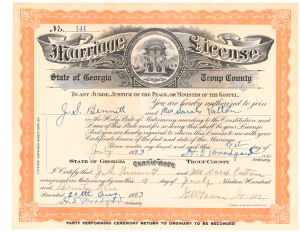 No. 141
Marriage License
State of Georgia Troup County
TO ANY JUDGE, JUSTICE OF THE PEACE, OR MINISTER OF THE GOSPEL.
You are hereby authorized to join
J.S. Bennett and Mrs Sarah Patton
in the Holy State of Matrimony according to the Constitution and
Laws of this State and for so doing this shall be your License.
And you are hereby required to return this License to me with your
Given under my hand and seal this of
July
Ordinary
STATE OF GEORGIA Certificate TROUP COUNTY
I Certify that J. S. Bennett and Mrs Sarah Patton
were joined in Matrimony by me this 9 day of July Nineteen Hundred
Recorded Aug
Ordinary
PARTY PERFORMING CEREMONY RETURN TO ORDINARY TO BE RECORDED